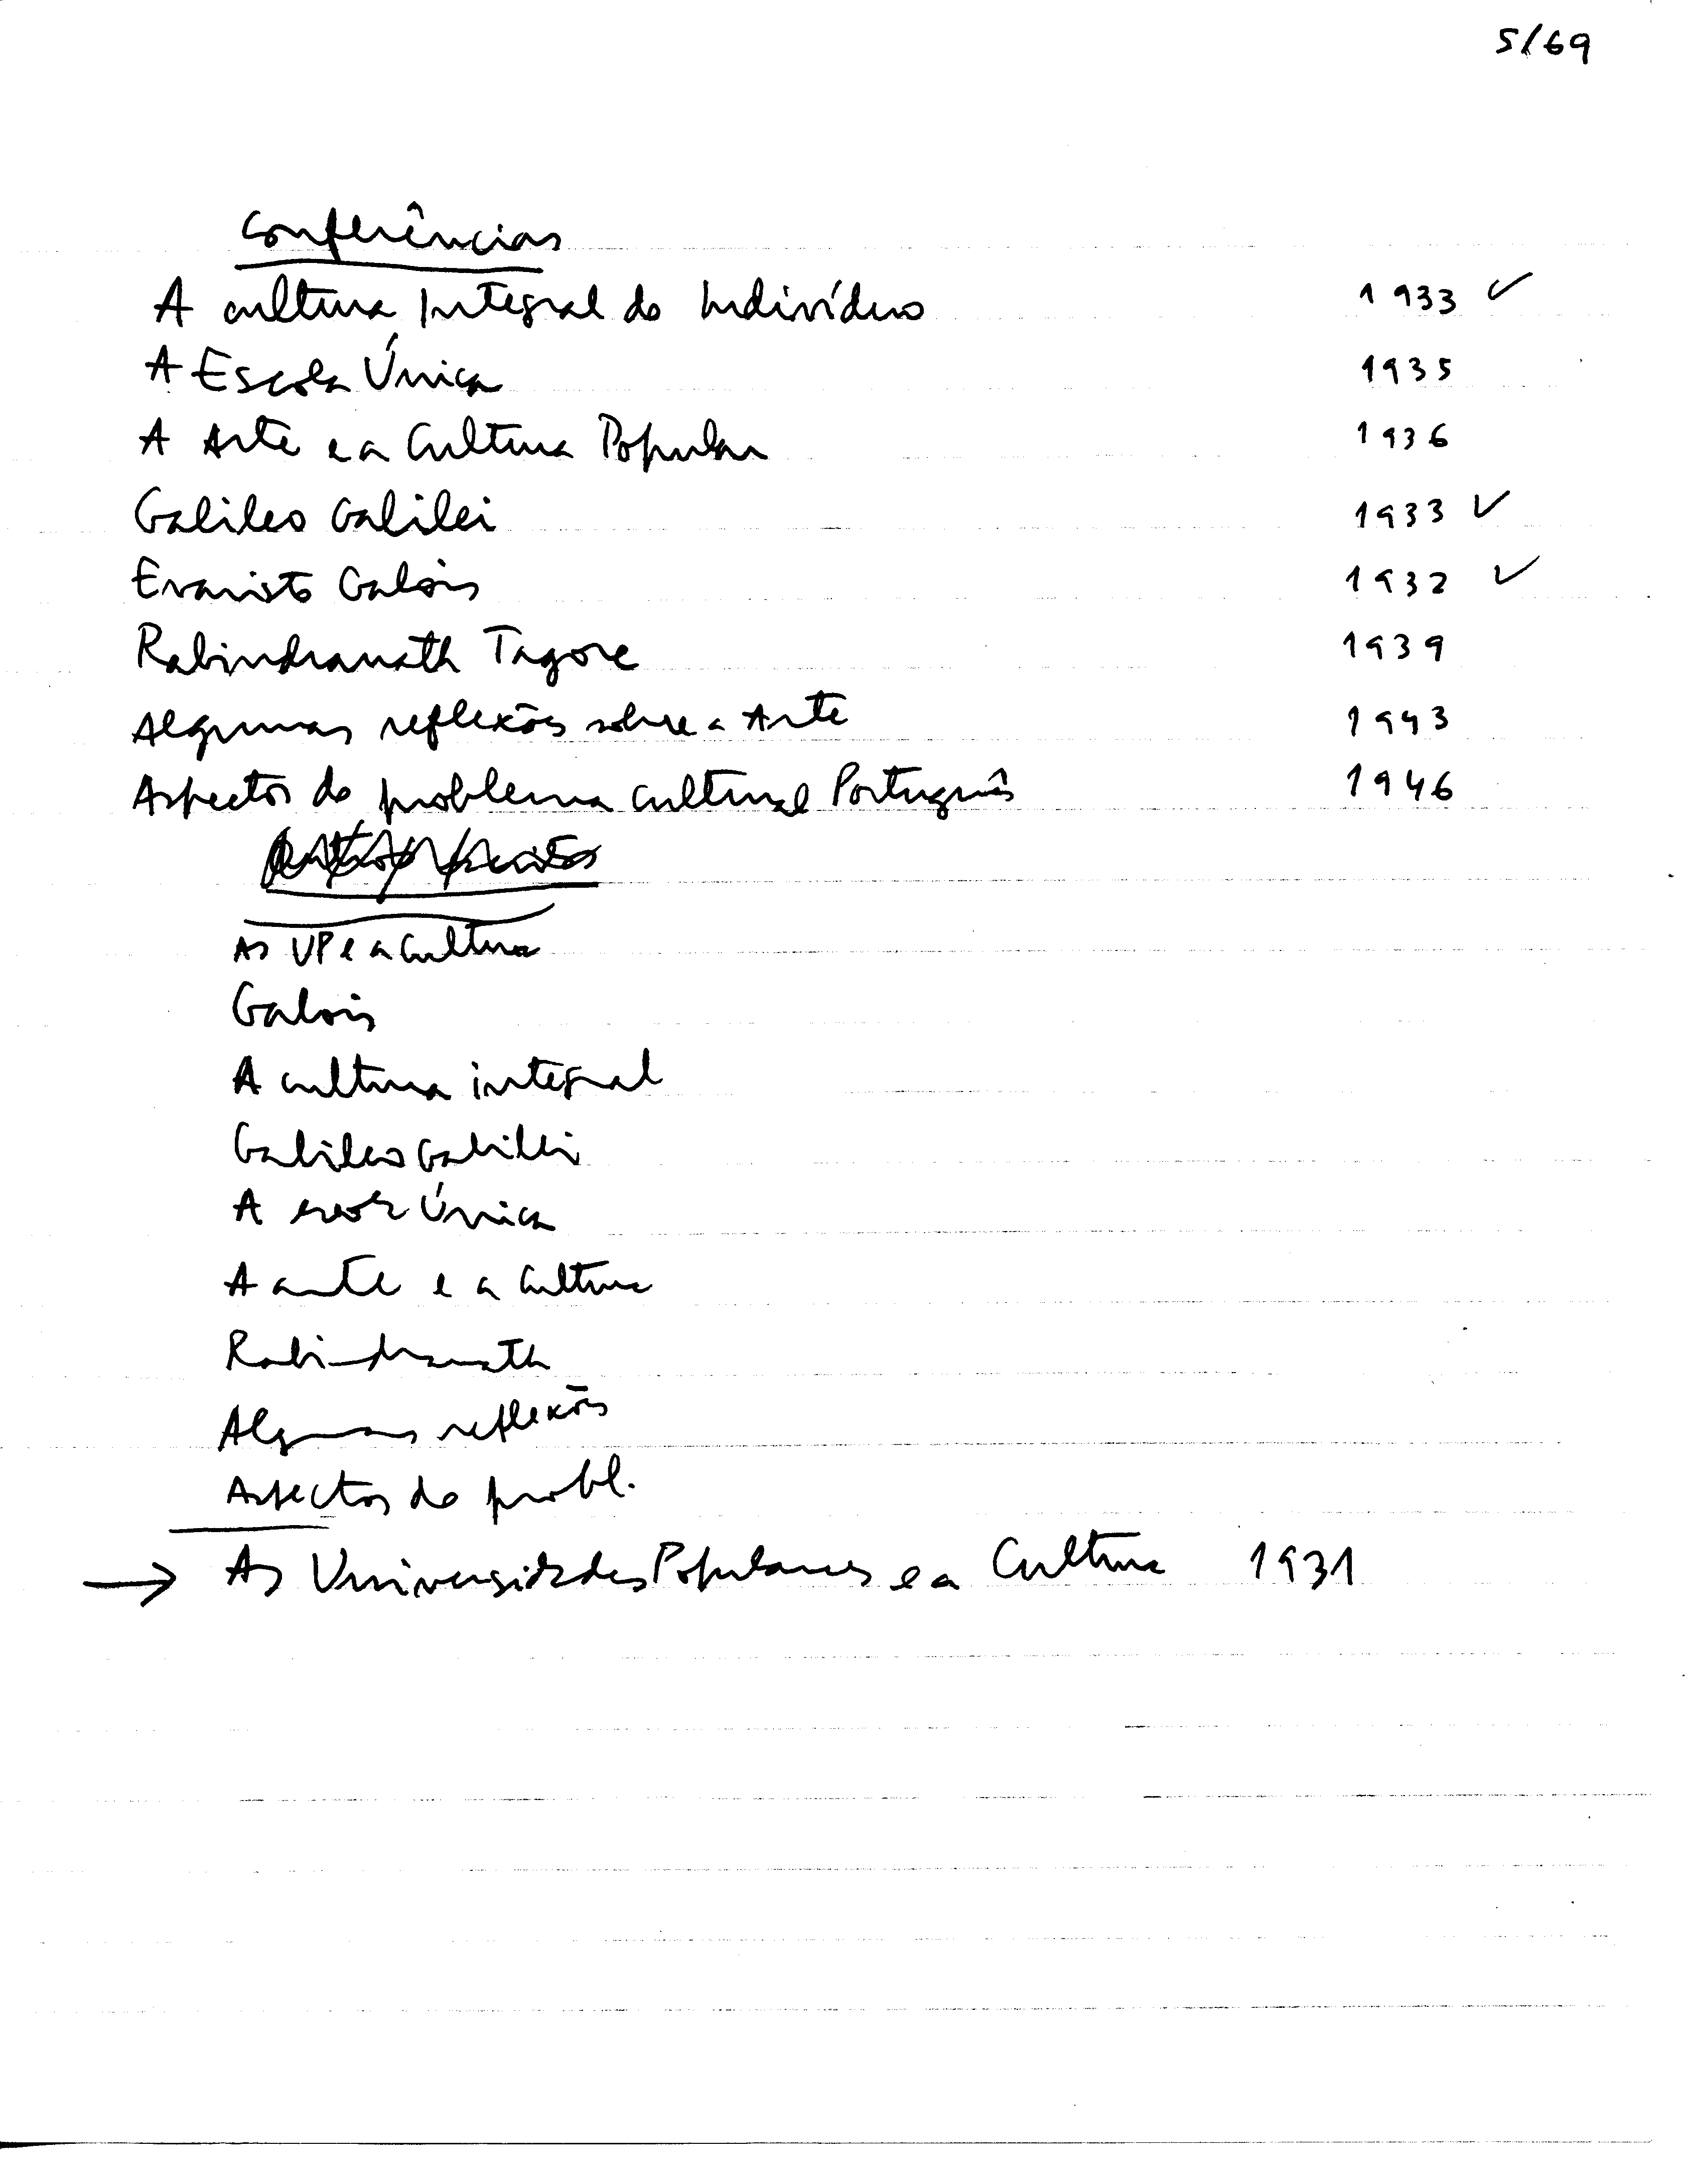 5/69
Conferências
A cultura Integral do Indivíduo 1933 ✓
A Escola Única 1935
A Arte e a Cultura Popular 1936
Galileo Galilei 1933 ✓
Evaristo Galois 1932 ✓
Rabindranath Tagore 1939
Algumas reflexões sobre a Arte 1943
Aspectos do problema cultural Português 1946
As UP e a Cultura
Galois
A cultura integral
Galileo Galilei
A escola Única
A arte e a Cultura
Rabindranath
Algumas reflexões
Aspectos do probl.
→ As Universidades Populares e a Cultura 1931